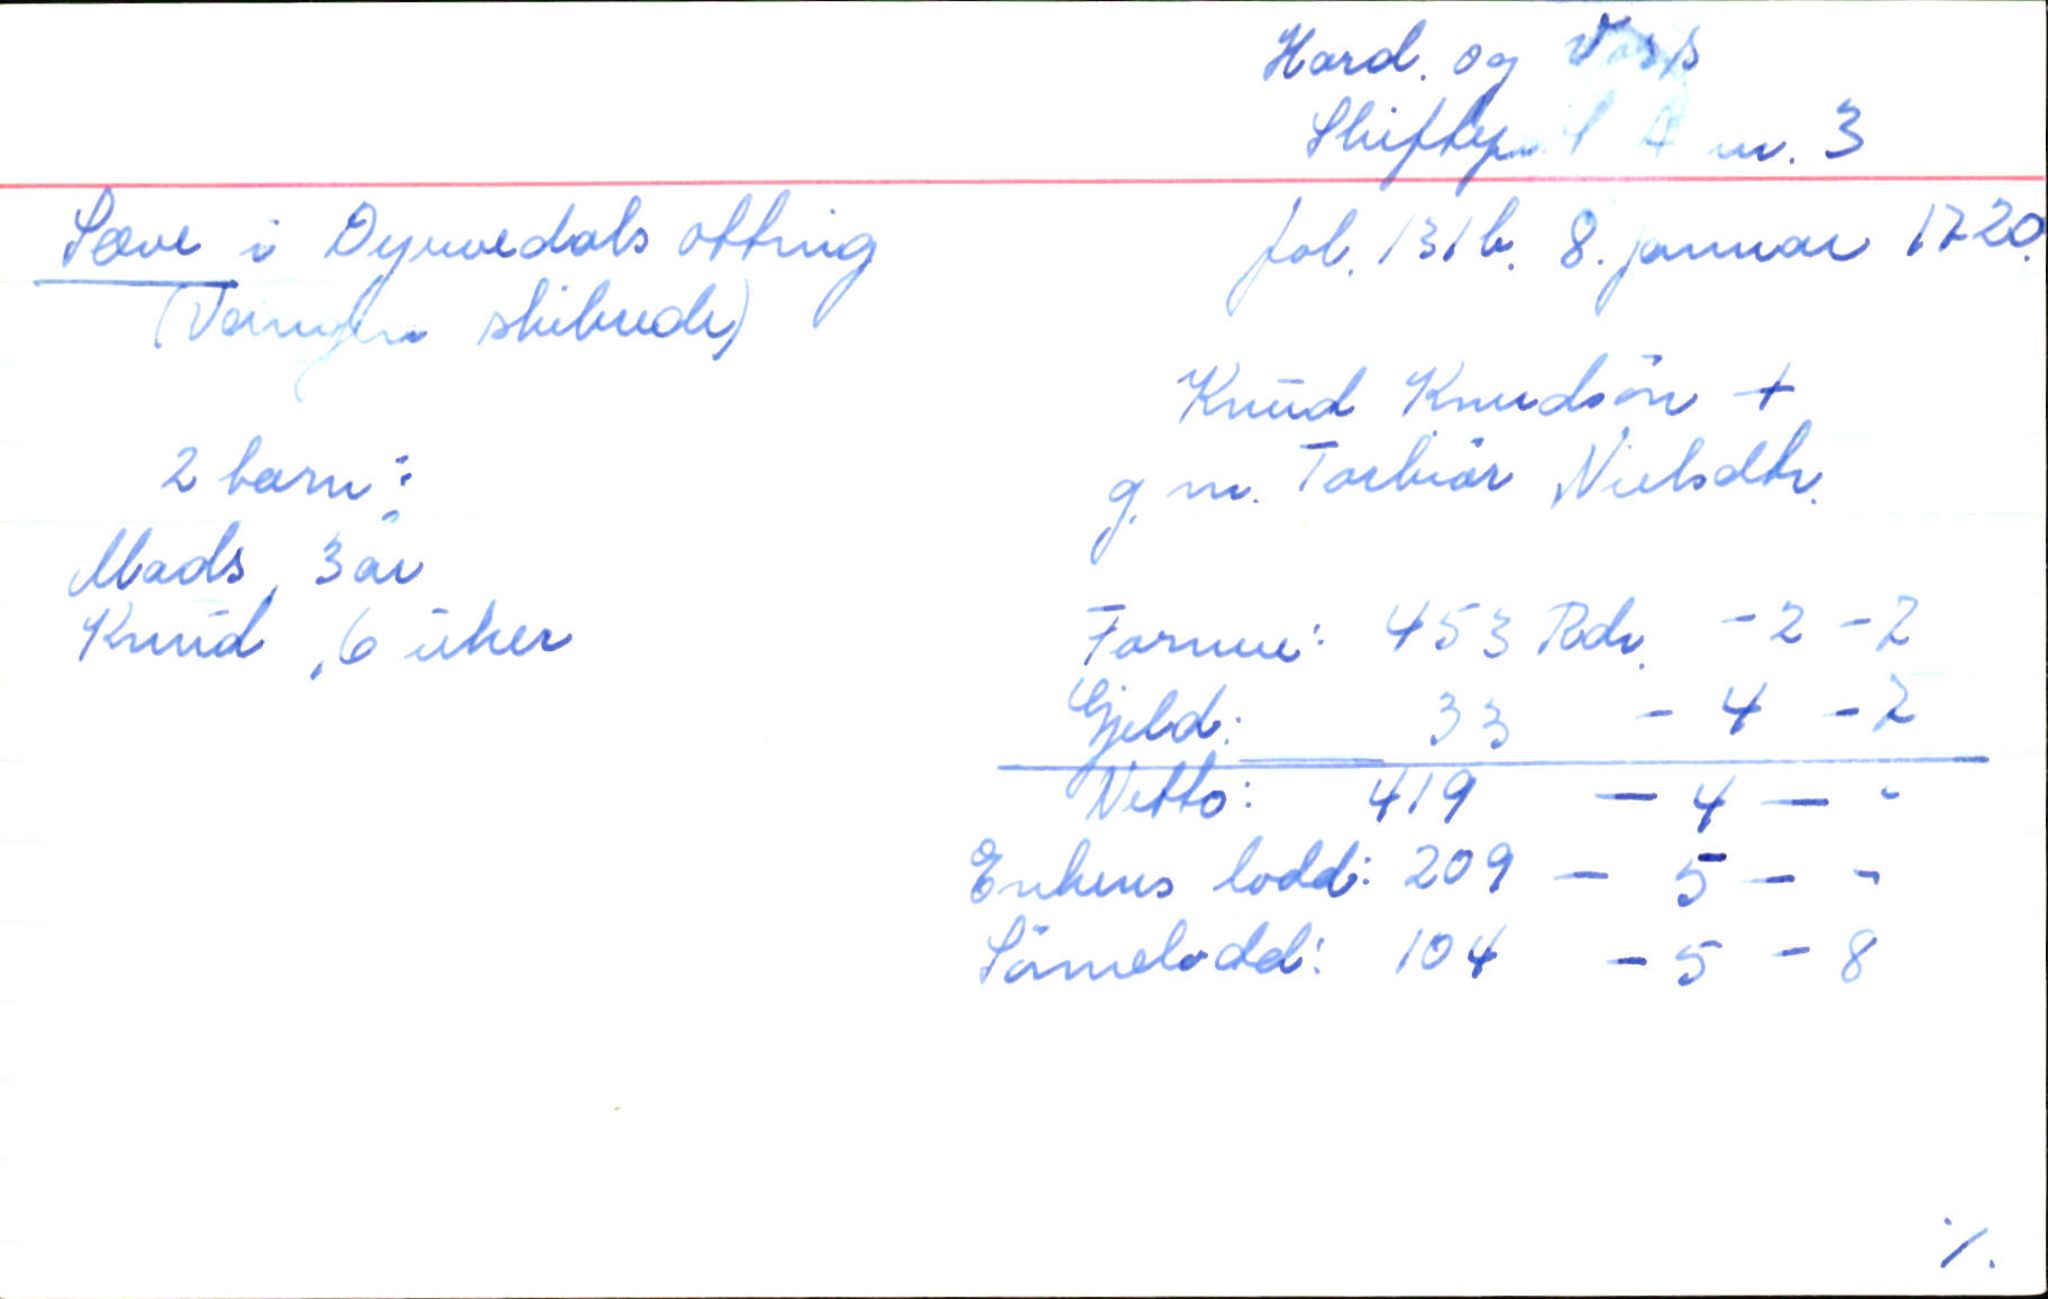 Hard. og Voss
Skiftepr. A nr. 3
Sæve i Dyrvedals otting
fol. 131b. 8. januar 1720.
(Vangen skibrede)
Knud Knudsön +
g. m. Torbiör Nielsdtr.
2 barn:
Mads, 3 år
Knud, 6 uker
Formue: 453 Rdr. - 2 - 2
Gjeld: 33 - 4 - 2
Netto: 419 - 4 - -
Enkens lodd: 209 - 5 - -
Sönnelodd: 104 - 5 - 8
./.